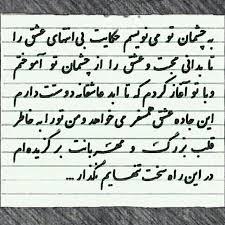 به چشمان تو می نویسم حکایت بی انتهای عشق را
تا بدانی محبت و عشق را از چشمان تو آموختم
و با تو آغاز کردم که تا ابد عاشقانه دوست دارم
این جاده عشق همسفر می خواهد و من تو را به خاطر
قلب بزرگ و مهربانت برگزیده ام
در این راه سخت تنهایم نگذار ...